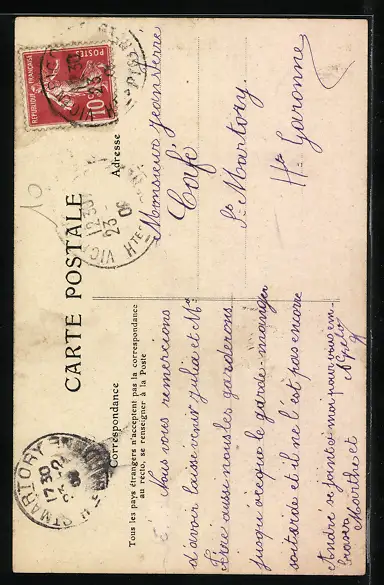 CARTE POSTALE
Correspondance
Tous les pays étrangers n'acceptent pas la correspondance
au recto, se renseigner à la Poste
Nous vous remercions
d'avoir laissé venir Julia et Mr
aussi nous les garderons
jusqu'à ce que le garde-manger
soit tarde et il ne l'est pas encore
André se joint à moi pour vous em-
brasser
Marthe et
Adresse
Monsieur Jean
Café
St Martory
Hte Garonne
10
REPUBLIQUE FRANÇAISE
POSTES
10
12 30
23
VIC
Hte
ST MARTORY
17 30